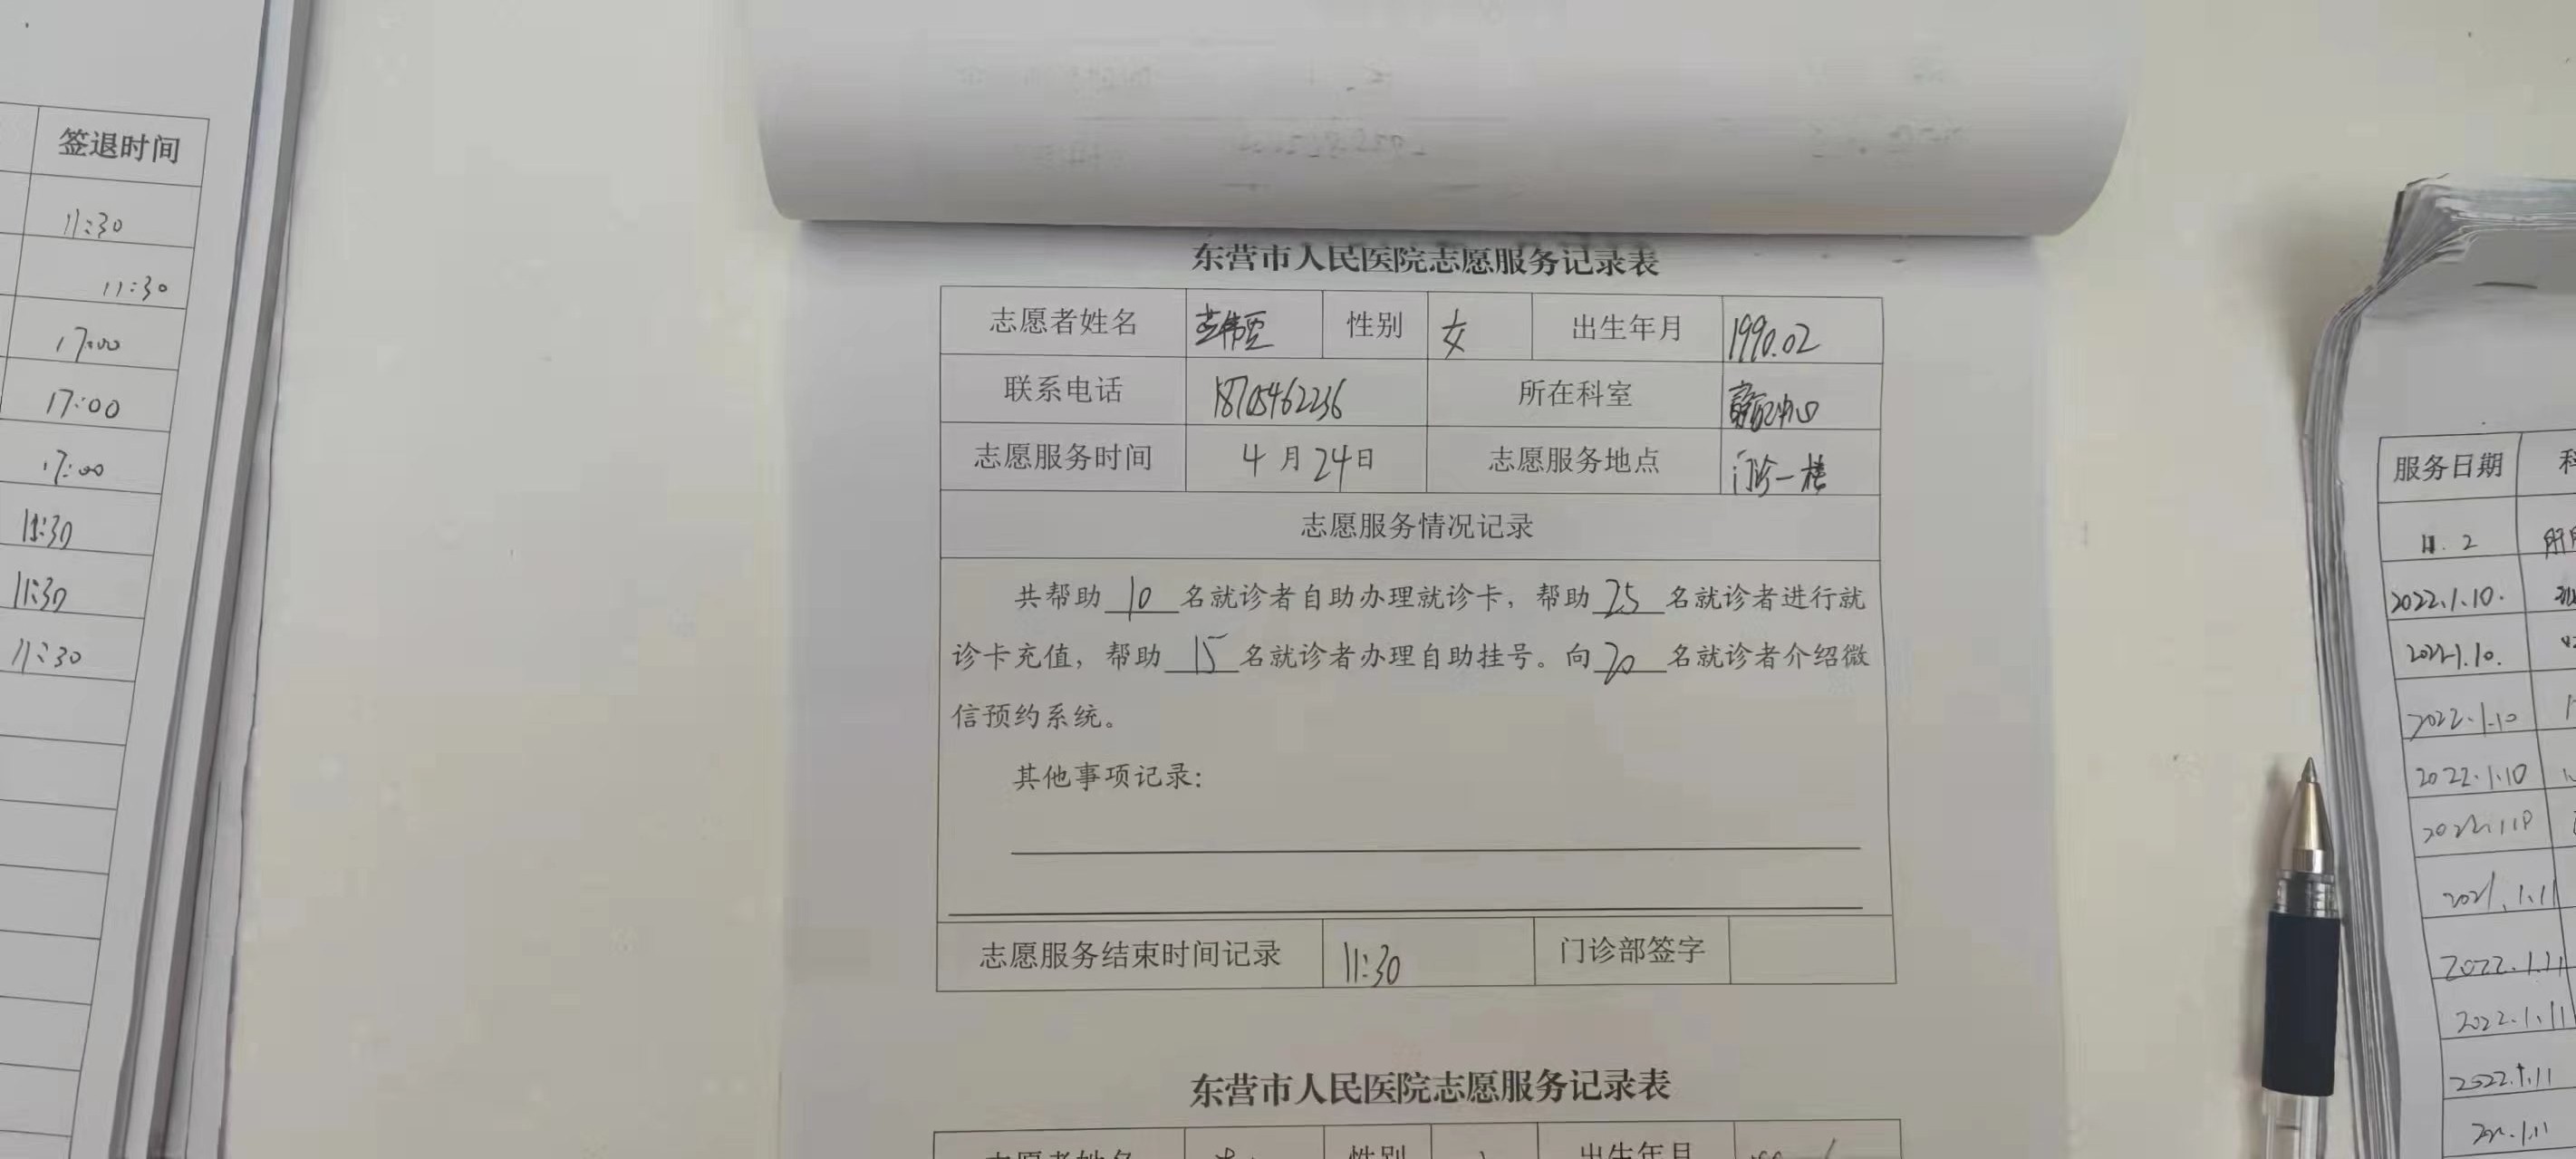 签退时间
11:30
11:30
17:00
17:00
17:00
11:30
11:30
11:30
东营市人民医院志愿服务记录表
志愿者姓名 性别 女 出生年月 1990.02
联系电话 18705462236 所在科室
志愿服务时间 4月24日 志愿服务地点 门诊一楼
志愿服务情况记录
共帮助 10 名就诊者自助办理就诊卡，帮助 25 名就诊者进行就
诊卡充值，帮助 15 名就诊者办理自助挂号。向 20 名就诊者介绍微
信预约系统。
其他事项记录：
志愿服务结束时间记录 11:30 门诊部签字
东营市人民医院志愿服务记录表
志愿者姓名 性别 出生年月
服务日期 科
11.2
2022.1.10.
2022.1.10.
2022.1.10
2022.1.10
2021.1.11
2022.1.11
2022.1.11
2022.1.11